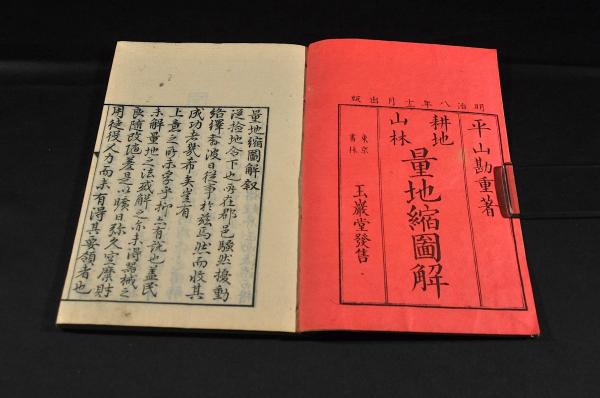 明治八年十二月出版
平山勘重著
耕地
山林
量地縮圖解
東京
書林
玉巖堂發售
量地縮圖解叙
檢地令下也每在郡邑騷然擾動
絡繹奔波日從事於茲焉然而收其
成功者幾希矣豈有
上意之所未孚乎抑有說也蓋民
未解量地之法或解之亦未得器械之
良隨改隨差是以曠日弥久空糜財
用徒役人力而未有得其要領者也